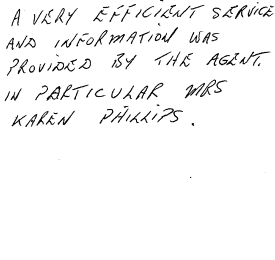 A VERY EFFICIENT SERVICE
AND INFORMATION WAS
PROVIDED BY THE AGENT.
IN PARTICULAR MRS
KAREN PHILLIPS.